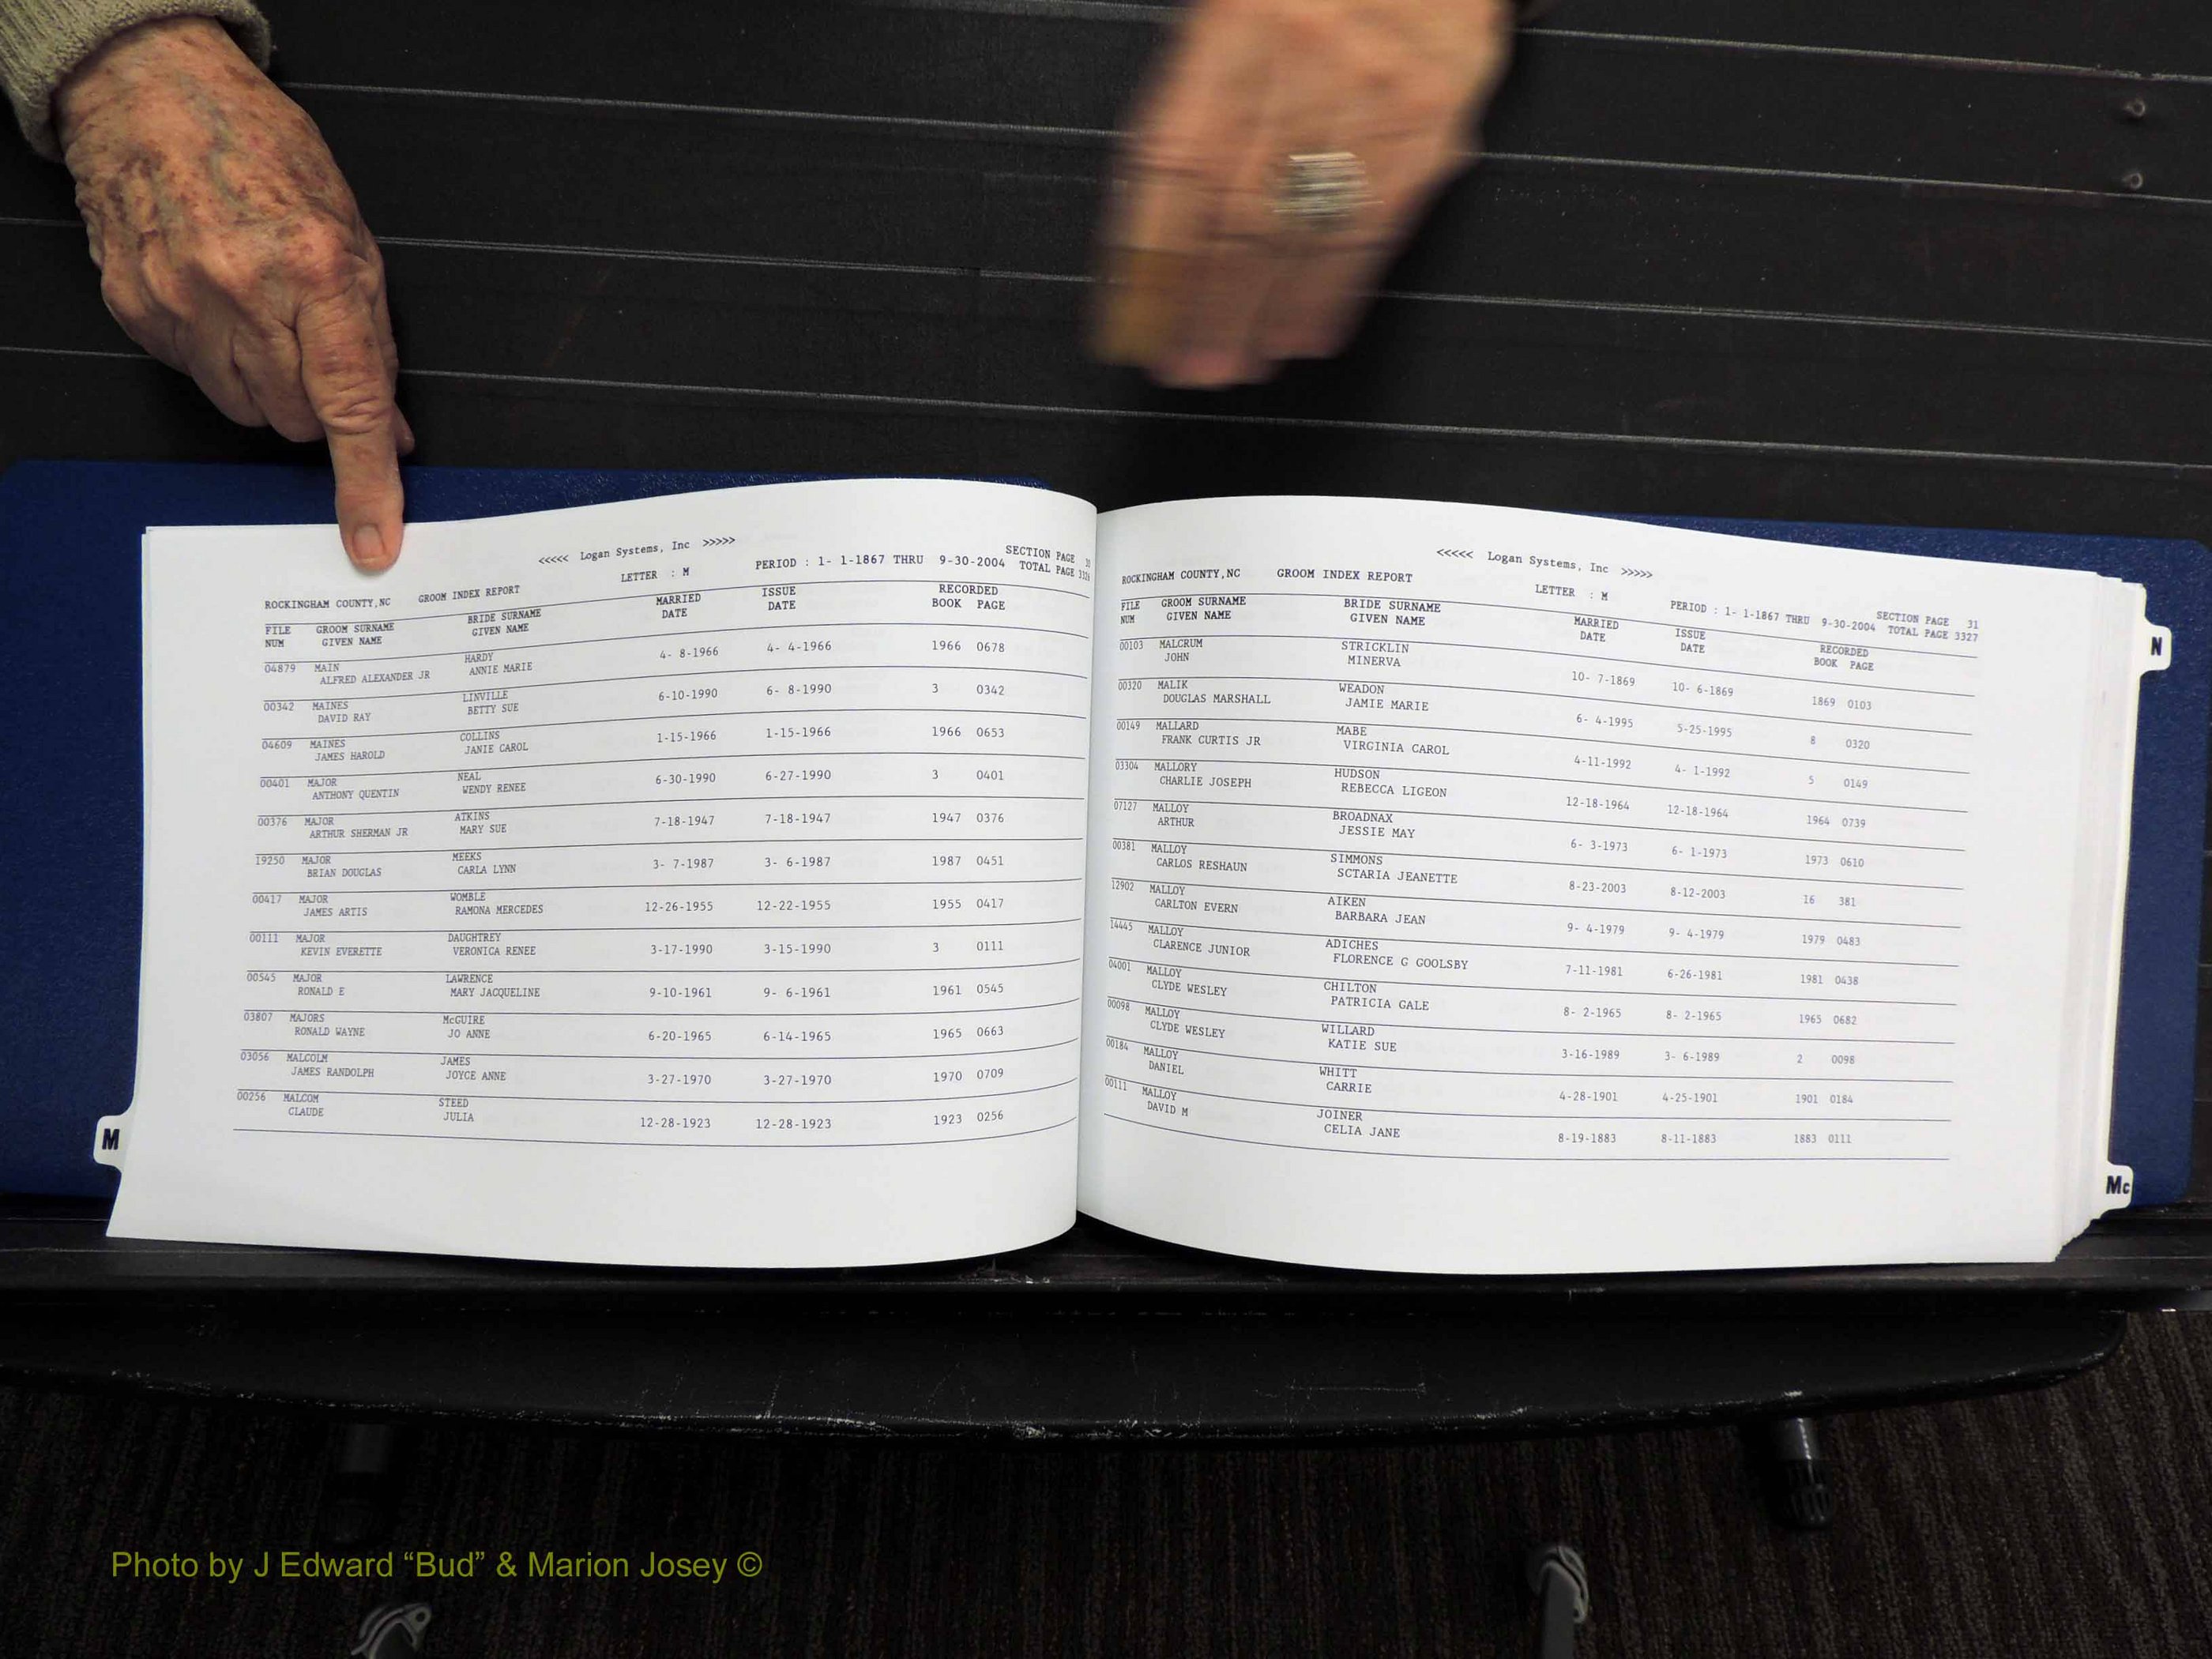 <<<<< Logan Systems, Inc >>>>>
ROCKINGHAM COUNTY,NC GROOM INDEX REPORT LETTER : M PERIOD : 1- 1-1867 THRU 9-30-2004 SECTION PAGE 30
TOTAL PAGE 3326
FILE GROOM SURNAME BRIDE SURNAME MARRIED ISSUE RECORDED
NUM GIVEN NAME GIVEN NAME DATE DATE BOOK PAGE
04879 MAIN HARDY 4- 8-1966 4- 4-1966 1966 0678
ALFRED ALEXANDER JR ANNIE MARIE
00342 MAINES LINVILLE 6-10-1990 6- 8-1990 3 0342
DAVID RAY BETTY SUE
04609 MAINES COLLINS 1-15-1966 1-15-1966 1966 0653
JAMES HAROLD JANIE CAROL
00401 MAJOR NEAL 6-30-1990 6-27-1990 3 0401
ANTHONY QUENTIN WENDY RENEE
00376 MAJOR ATKINS 7-18-1947 7-18-1947 1947 0376
ARTHUR SHERMAN JR MARY SUE
19250 MAJOR MEEKS 3- 7-1987 3- 6-1987 1987 0451
BRIAN DOUGLAS CARLA LYNN
00417 MAJOR WOMBLE 12-26-1955 12-22-1955 1955 0417
JAMES ARTIS RAMONA MERCEDES
00111 MAJOR DAUGHTREY 3-17-1990 3-15-1990 3 0111
KEVIN EVERETTE VERONICA RENEE
00545 MAJOR LAWRENCE 9-10-1961 9- 6-1961 1961 0545
RONALD E MARY JACQUELINE
03807 MAJORS McGUIRE 6-20-1965 6-14-1965 1965 0663
RONALD WAYNE JO ANNE
03056 MALCOLM JAMES 3-27-1970 3-27-1970 1970 0709
JAMES RANDOLPH JOYCE ANNE
00256 MALCOM STEED 12-28-1923 12-28-1923 1923 0256
CLAUDE JULIA
M
<<<<< Logan Systems, Inc >>>>>
ROCKINGHAM COUNTY,NC GROOM INDEX REPORT LETTER : M PERIOD : 1- 1-1867 THRU 9-30-2004 SECTION PAGE 31
TOTAL PAGE 3327
FILE GROOM SURNAME BRIDE SURNAME MARRIED ISSUE RECORDED
NUM GIVEN NAME GIVEN NAME DATE DATE BOOK PAGE
00103 MALCRUM STRICKLIN 10- 7-1869 10- 6-1869 1869 0103
JOHN MINERVA
00320 MALIK WEADON 6- 4-1995 5-25-1995 8 0320
DOUGLAS MARSHALL JAMIE MARIE
00149 MALLARD MABE 4-11-1992 4- 1-1992 5 0149
FRANK CURTIS JR VIRGINIA CAROL
03304 MALLORY HUDSON 12-18-1964 12-18-1964 1964 0739
CHARLIE JOSEPH REBECCA LIGEON
07127 MALLOY BROADNAX 6- 3-1973 6- 1-1973 1973 0610
ARTHUR JESSIE MAY
00381 MALLOY SIMMONS 8-23-2003 8-12-2003 16 381
CARLOS RESHAUN SCTARIA JEANETTE
12902 MALLOY AIKEN 9- 4-1979 9- 4-1979 1979 0483
CARLTON EVERN BARBARA JEAN
14445 MALLOY ADICHES 7-11-1981 6-26-1981 1981 0438
CLARENCE JUNIOR FLORENCE G GOOLSBY
04001 MALLOY CHILTON 8- 2-1965 8- 2-1965 1965 0682
CLYDE WESLEY PATRICIA GALE
00098 MALLOY WILLARD 3-16-1989 3- 6-1989 2 0098
CLYDE WESLEY KATIE SUE
00184 MALLOY WHITT 4-28-1901 4-25-1901 1901 0184
DANIEL CARRIE
00111 MALLOY JOINER 8-19-1883 8-11-1883 1883 0111
DAVID M CELIA JANE
N
Mc
Photo by J Edward “Bud” & Marion Josey ©